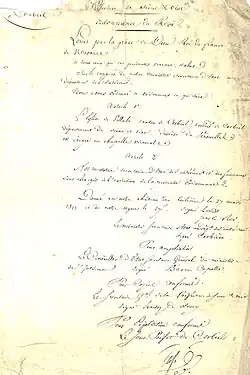 Corbeil
Préfecture de Seine et Oise
Ordonnance du Roi
Louis par la grâce de Dieu Roi de france et
de Navarre
à tous ceux qui ces présentes verront, salut
Sur le rapport de notre ministre secrétaire d'état au
département de l'intérieur
Nous avons ordonné et ordonnons ce qui suit
Article 1er
L'Eglise de canton de Corbeil de Corbeil
département de Seine et Oise, diocèse de Versailles
est érigée en chapelle vicariale
Article 2
Notre ministre secrétaire d'état de l'intérieur et des finances
sont chargés de l'exécution de la présente ordonnance
Donné en notre château des tuileries le 27
et de notre règne le signé Louis
par le Roi
Le ministre secrétaire d'état de l'intérieur
signé Corbière
Pour ampliation
Le Conseiller d'état Secrétaire Général du ministère
de l'Intérieur signé Baron Capelle
Pour Copie conforme
Le Secrétaire Gal de la Préfecture de Seine et Oise
signé
Pour Expédition conforme
Le Sous Préfet de Corbeil